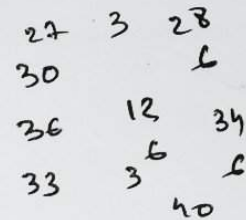 27 3 28
30 6
36 12 34
6
33 3 6
40